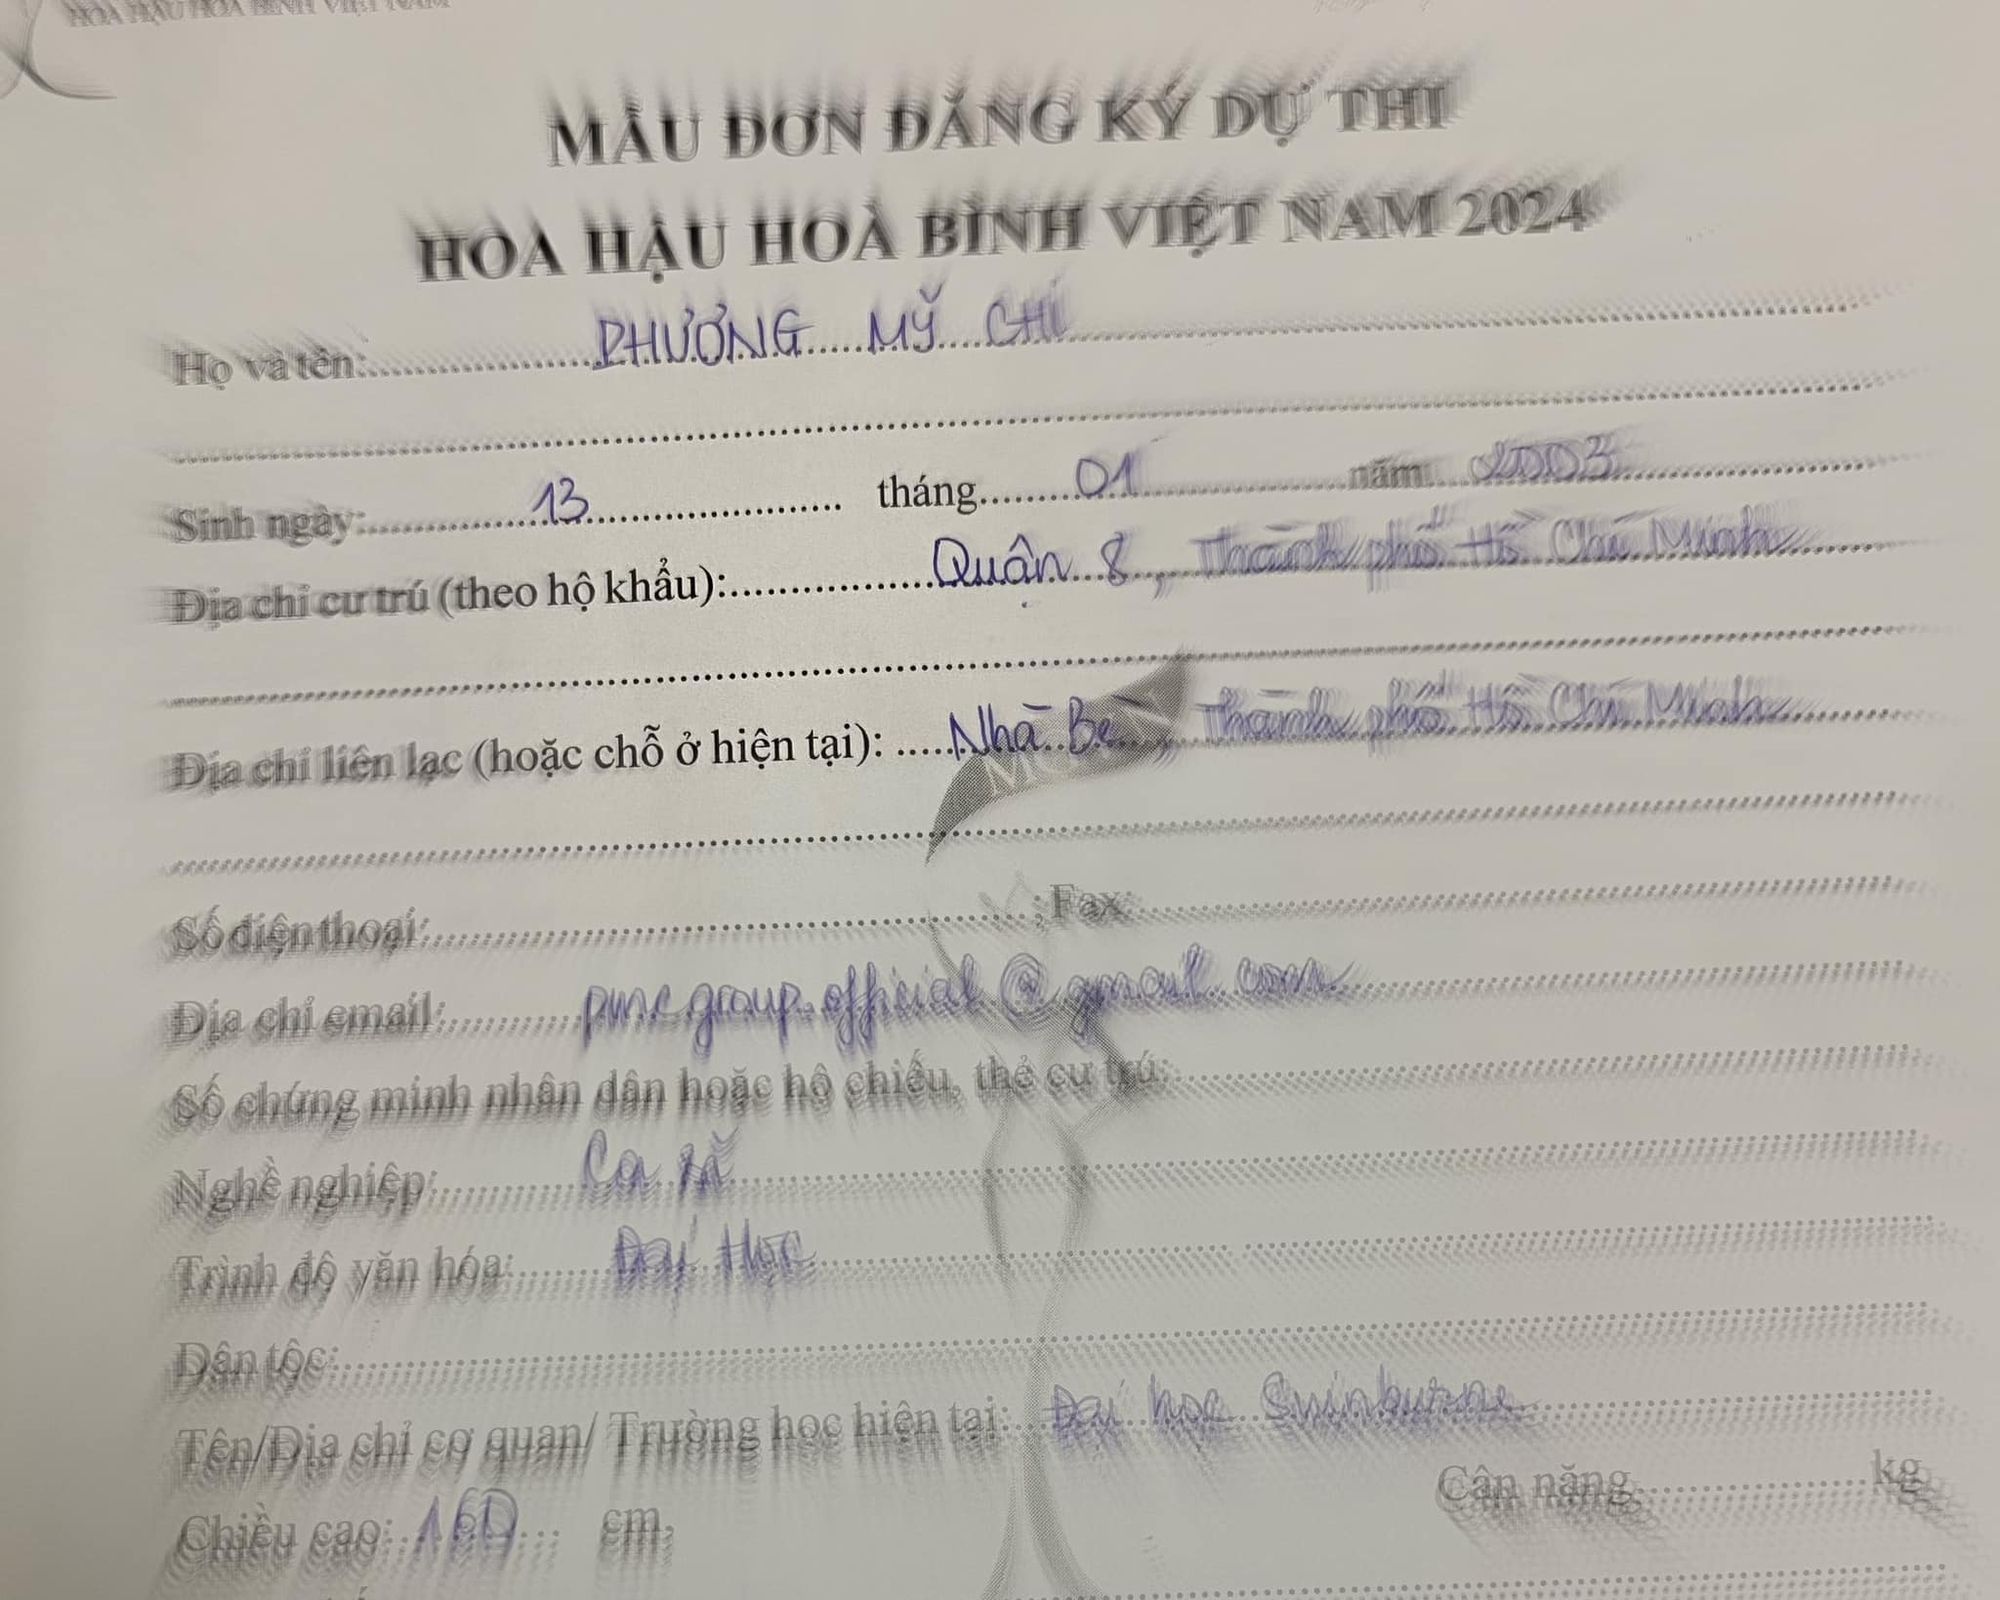 HOA HẬU HOÀ BÌNH VIỆT NAM
MẪU ĐƠN ĐĂNG KÝ DỰ THI
HOA HẬU HOÀ BÌNH VIỆT NAM 2024
Họ và tên: PHƯƠNG MỸ CHI
Sinh ngày: 13 tháng 01 năm 2003
Địa chỉ cư trú (theo hộ khẩu): Quận 8, Thành phố Hồ Chí Minh
Địa chỉ liên lạc (hoặc chỗ ở hiện tại): Nhà Bè, Thành phố Hồ Chí Minh
Số điện thoại: ; Fax:
Địa chỉ email: pmcgroup.official@gmail.com
Số chứng minh nhân dân hoặc hộ chiếu, thẻ cư trú:
Nghề nghiệp: Ca sĩ
Trình độ văn hóa: Đại Học
Dân tộc:
Tên/Địa chỉ cơ quan/ Trường học hiện tại: Đại học Swinburne
Chiều cao: 160 cm, Cân nặng kg